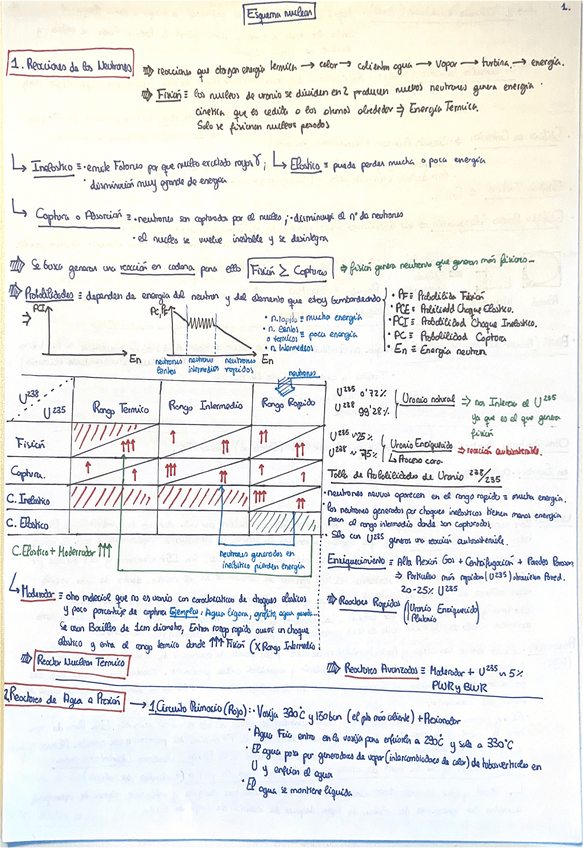 Esquema nuclear
1.
1. Reacciones de los Neutrones
⇒ reacciones que otorgan energía termica → calor → calientan agua → vapor → turbina → energía.
⇒ Fision ≡ los nucleos de uranio se dividen en 2 producen nuevos neutrones genera energía
cinetica que es cedida a los atomos alrededor ⇒ Energía Termica.
Solo se fisionan nucleos pesados
↳ Inelastico ≡ · emite Fotones por que nucleo excitado rayos γ ;
· disminucion muy grande de energía
↳ Elastico ≡ puede perder mucha o poca energía
↳ Captura o Absorcion ≡ · neutrones son capturados por el nucleo ; · disminuye el nº de neutrones
· el nucleo se vuelve inestable y se desintegra
⇒ Se busca generar una reacción en cadena para ello Fision ≥ Captura ⇒ fision genera neutrones que generan más fisiones...
⇒ Probabilidades ≡ dependen de energía del neutron y del elemento que estoy bombardeando
· PF ≡ Probabilidad Fision
· PCE ≡ Probabilidad Choque Elastico.
· PCI ≡ Probabilidad Choque Inelastico.
· PC ≡ Probabilidad Captura
· En ≡ Energía neutron.
PCI
En
PC, PF
En
neutrones lentes
neutrones intermedios
neutrones rapidos
· n. rapido ≡ mucha energía
· n. lentes
o termicos ≡ poca energía
· n. intermedios
neutrones
U²³⁸
U²³⁵
Rango Termico
Rango Intermedio
Rango Rapido
Fision
↑↑↑
↑
↑↑
↑↑
↑
Captura.
↑
↑
↑↑↑
↑↑
↑
↑
C. Inelastico
↑↑↑
↑↑
C. Elastico
C. Elastico + Moderador ↑↑↑
Neutrones generados en
inelastico pierden energía
U²³⁵ 0'72%
U²³⁸ 99'28%
Uranio natural ⇒ nos interesa el U²³⁵
ya que es el que genera
fision
U²³⁵ ~ 25%
U²³⁸ ~ 75%
Uranio Enriquecido ⇒ reacción autosostenible.
↳ Proceso caro
Tabla de Probabilidades de Uranio 238/235
· neutrones nuevos aparecen en el rango rapido ≡ mucha energía.
· los neutrones generados por choques inelasticos tienen menos energía
pasan al rango intermedio donde son capturados.
· Sólo con U²³⁵ genero una reacción autosostenible.
Enriquecimiento ≡ Alta Presion Gas + Centrifugación + Paredes Porosas
⇒ Particulas más rapidas (U²³⁵) atraviesan Pared.
20-25% U²³⁵
⇒ Reactores Rapidos
Uranio Enriquecido
Plutonio
↳ Moderador ≡ otro material que no es uranio con caracteristicas de choques elasticos
y poco porcentaje de captura Ejemplos: Agua ligera, grafito, agua pesada
Se usan Barillas de 1cm diametro, Entran rango rapido ocurre un choque
elastico y entra al rango termico donde ↑↑↑ Fision (X Rango Intermedio
⇒ Reactor Nuclear Térmico
⇒ Reactores Avanzados ≡ Moderador + U²³⁵ ~ 5%
PWR y BWR
2. Reactores de Agua a Presion
→ 1. Circuito Primario (Rojo): · Vasija 330°C y 150 bar (el pto más caliente) + Presionador
· Agua Fria entra en la vasija para enfriarla a 290°C y sale a 330°C
· El agua pasa por generadores de vapor (intercambiadores de calor) de tubos verticales en
U y enfrian el agua
· El agua se mantiene liquida